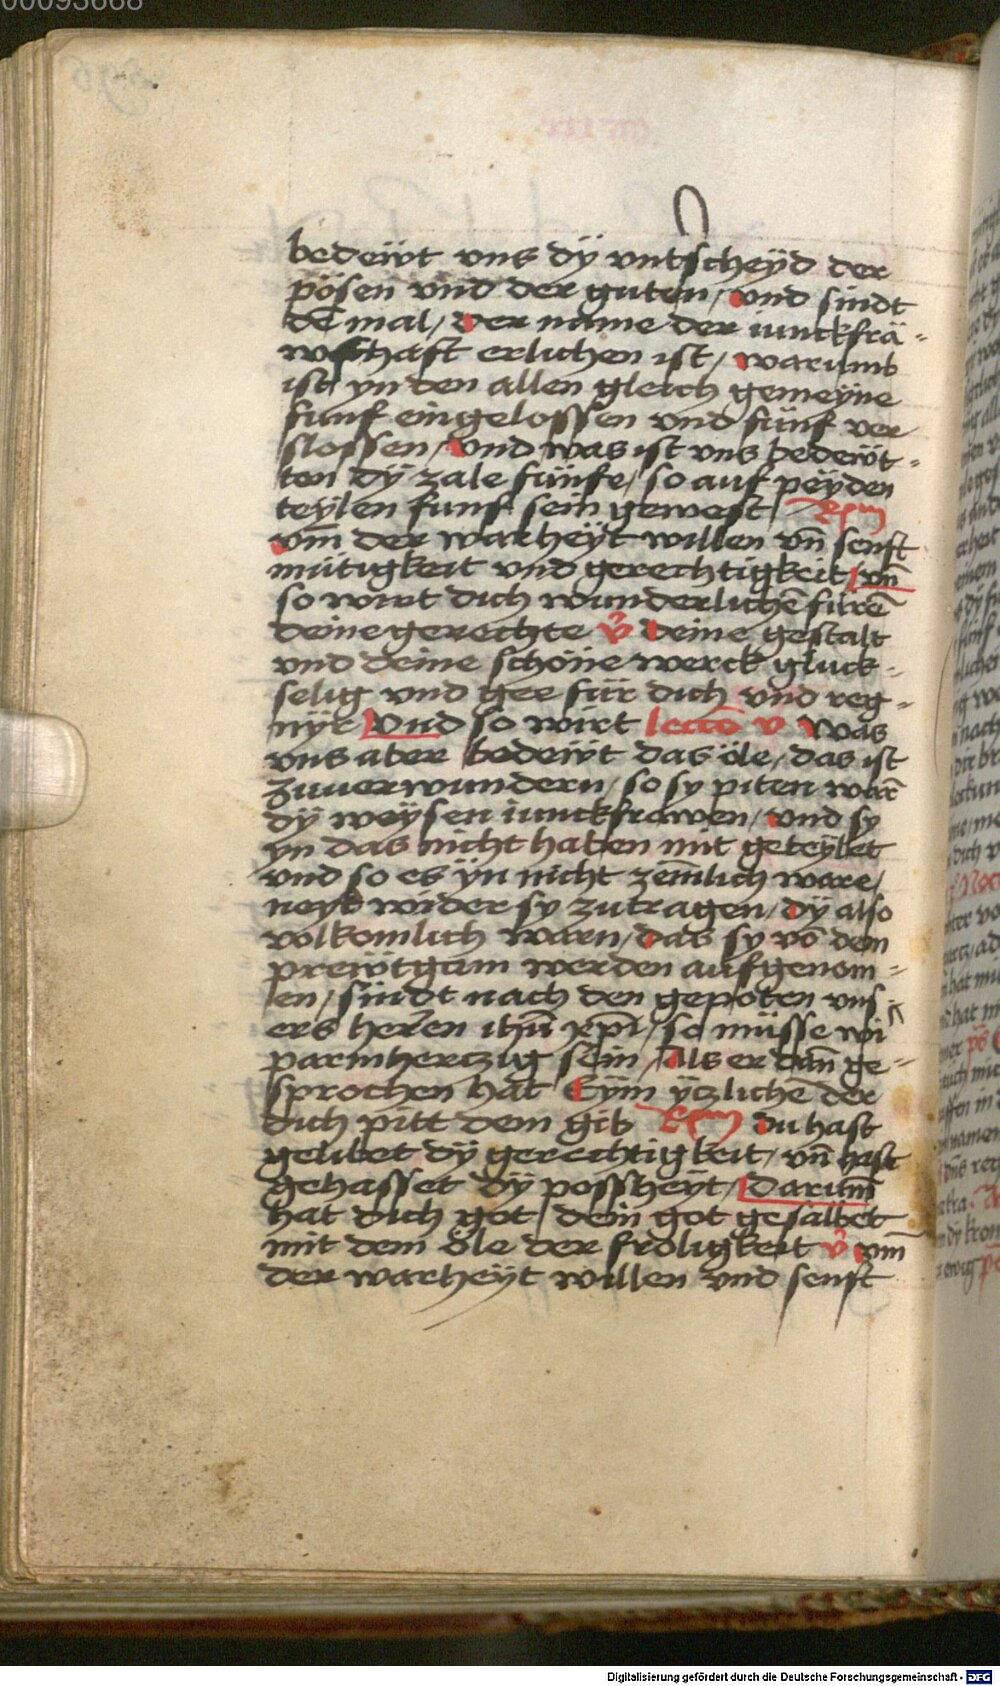 00093668
bedeẅt vns dÿ vntscheÿd der
pösen vnd der guten / vnd sindt
de mal / der name der iunckfrä-
wschaft erlichen ist / warumb
ist yn den allen gleich gemeÿne
funf eingelossen vnd fünf ver
slossen / vnd was ist vns bedeẅt-
ten dÿ zale fünfe / so auf peÿden
teÿlen funf sein gewest / Rpm
vm̄ der warheÿt willen vn̄ senft
mütigkeit vnd gerechtigkeit / vn̄
so wirt dich wunderlichē fürē
deine gerechte v̄ deine gestalt
vnd deine schöne werck gluck-
selig vnd gee für dich vnd reg-
nÿr Vnd so wirt lectō v was
vns aber bedeẅt das öle / das ist
zuuerwundern / so sy piten warē
dÿ weÿsen iunckfrawen / vnd sy
yn das nicht haben mit geteÿlet
vnd so es ÿn nicht zem̄lich ware /
neyt wider sy zutragen / dÿ also
volkomlich warn / das sy vō dem
preẅtgam werden aufgenom-
en / sindt nach den gepoten vns-
ers herren ihū xp̄i / so müsse wi
parmhertzig sein / als er dan̄ ge-
sprochen hat Eÿm ÿczlichē der
dich pitt dem gib Rpm du hast
gelibet dÿ gerechtigkeit / vn̄ hast
gehasset dÿ possheÿt / Darum̄
hat dich got / dein got gesalbet
mit dem öle der fröligkeit v̄ vm̄
der warheÿt willen vnd senft
Digitalisierung gefördert durch die Deutsche Forschungsgemeinschaft - DFG